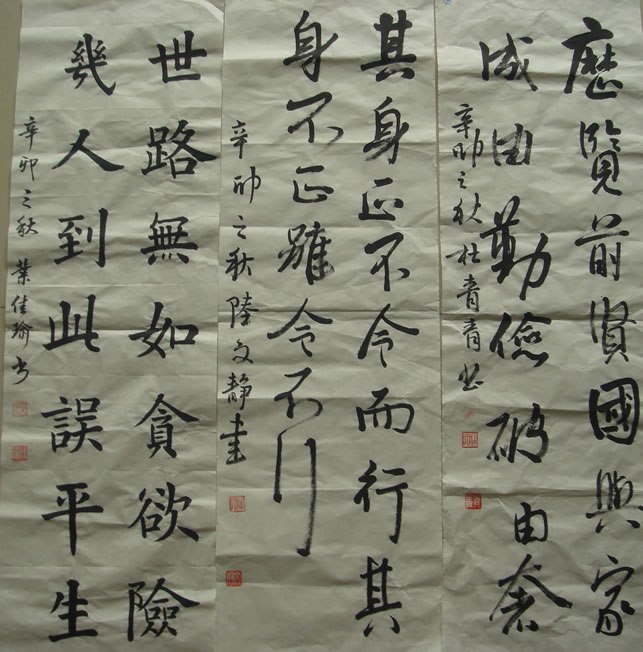 歷覽前賢國與家
成由勤儉破由奢
辛卯之秋杜青青书
其身正不令而行其
身不正雖令不行
辛卯之秋陸文靜書
世路無如貪欲險
幾人到此誤平生
辛卯之秋葉佳瑜书